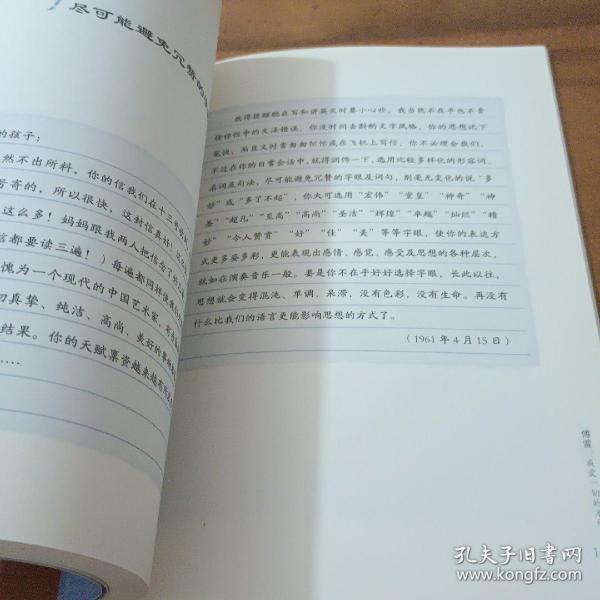 尽可能避免冗赘的
的孩子：
然不出所料，你的信我们在十三
号寄的，所以很快，这封信真好！
这么多！妈妈跟我两人把信念了
信都要读三遍！）每遍都同样
愧为一个现代的中国艺术家，
切真挚、纯洁、高尚、美好的
结果。你的天赋禀资越来越有
……
我得提醒聪在写和讲英文时要小心些，我当然不在乎也不责
怪你信中的文法错误，你没时间去斟酌文字风格，你的思想比下
笔快，而且又时常匆匆忙忙或在飞机上写信，你不必理会我们，
不过在你的日常会话中，就得润饰一下，选用比较多样化的形容词、
名词及句法，尽可能避免冗赘的字眼及词句，别毫无变化的说“多
妙”或“多了不起”，你大可选用“宏伟”“堂皇”“神奇”“神
圣”“超凡”“至高”“高尚”“圣洁”“辉煌”“卓越”“灿烂”“精
妙”“令人赞赏”“好”“佳”“美”等等字眼，使你的表达方
式更多姿多彩，更能表现出感情、感觉、感受及思想的各种层次，
就如在演奏音乐一般。要是你不在乎好好选择字眼，长此以往，
思想就会变得混沌、单调、呆滞，没有色彩，没有生命。再没有
什么比我们的语言更能影响思想的方式了。
（1961年4月15日）
傅雷：我爱一切的
1
孔夫子旧书网
www.kongfz.com